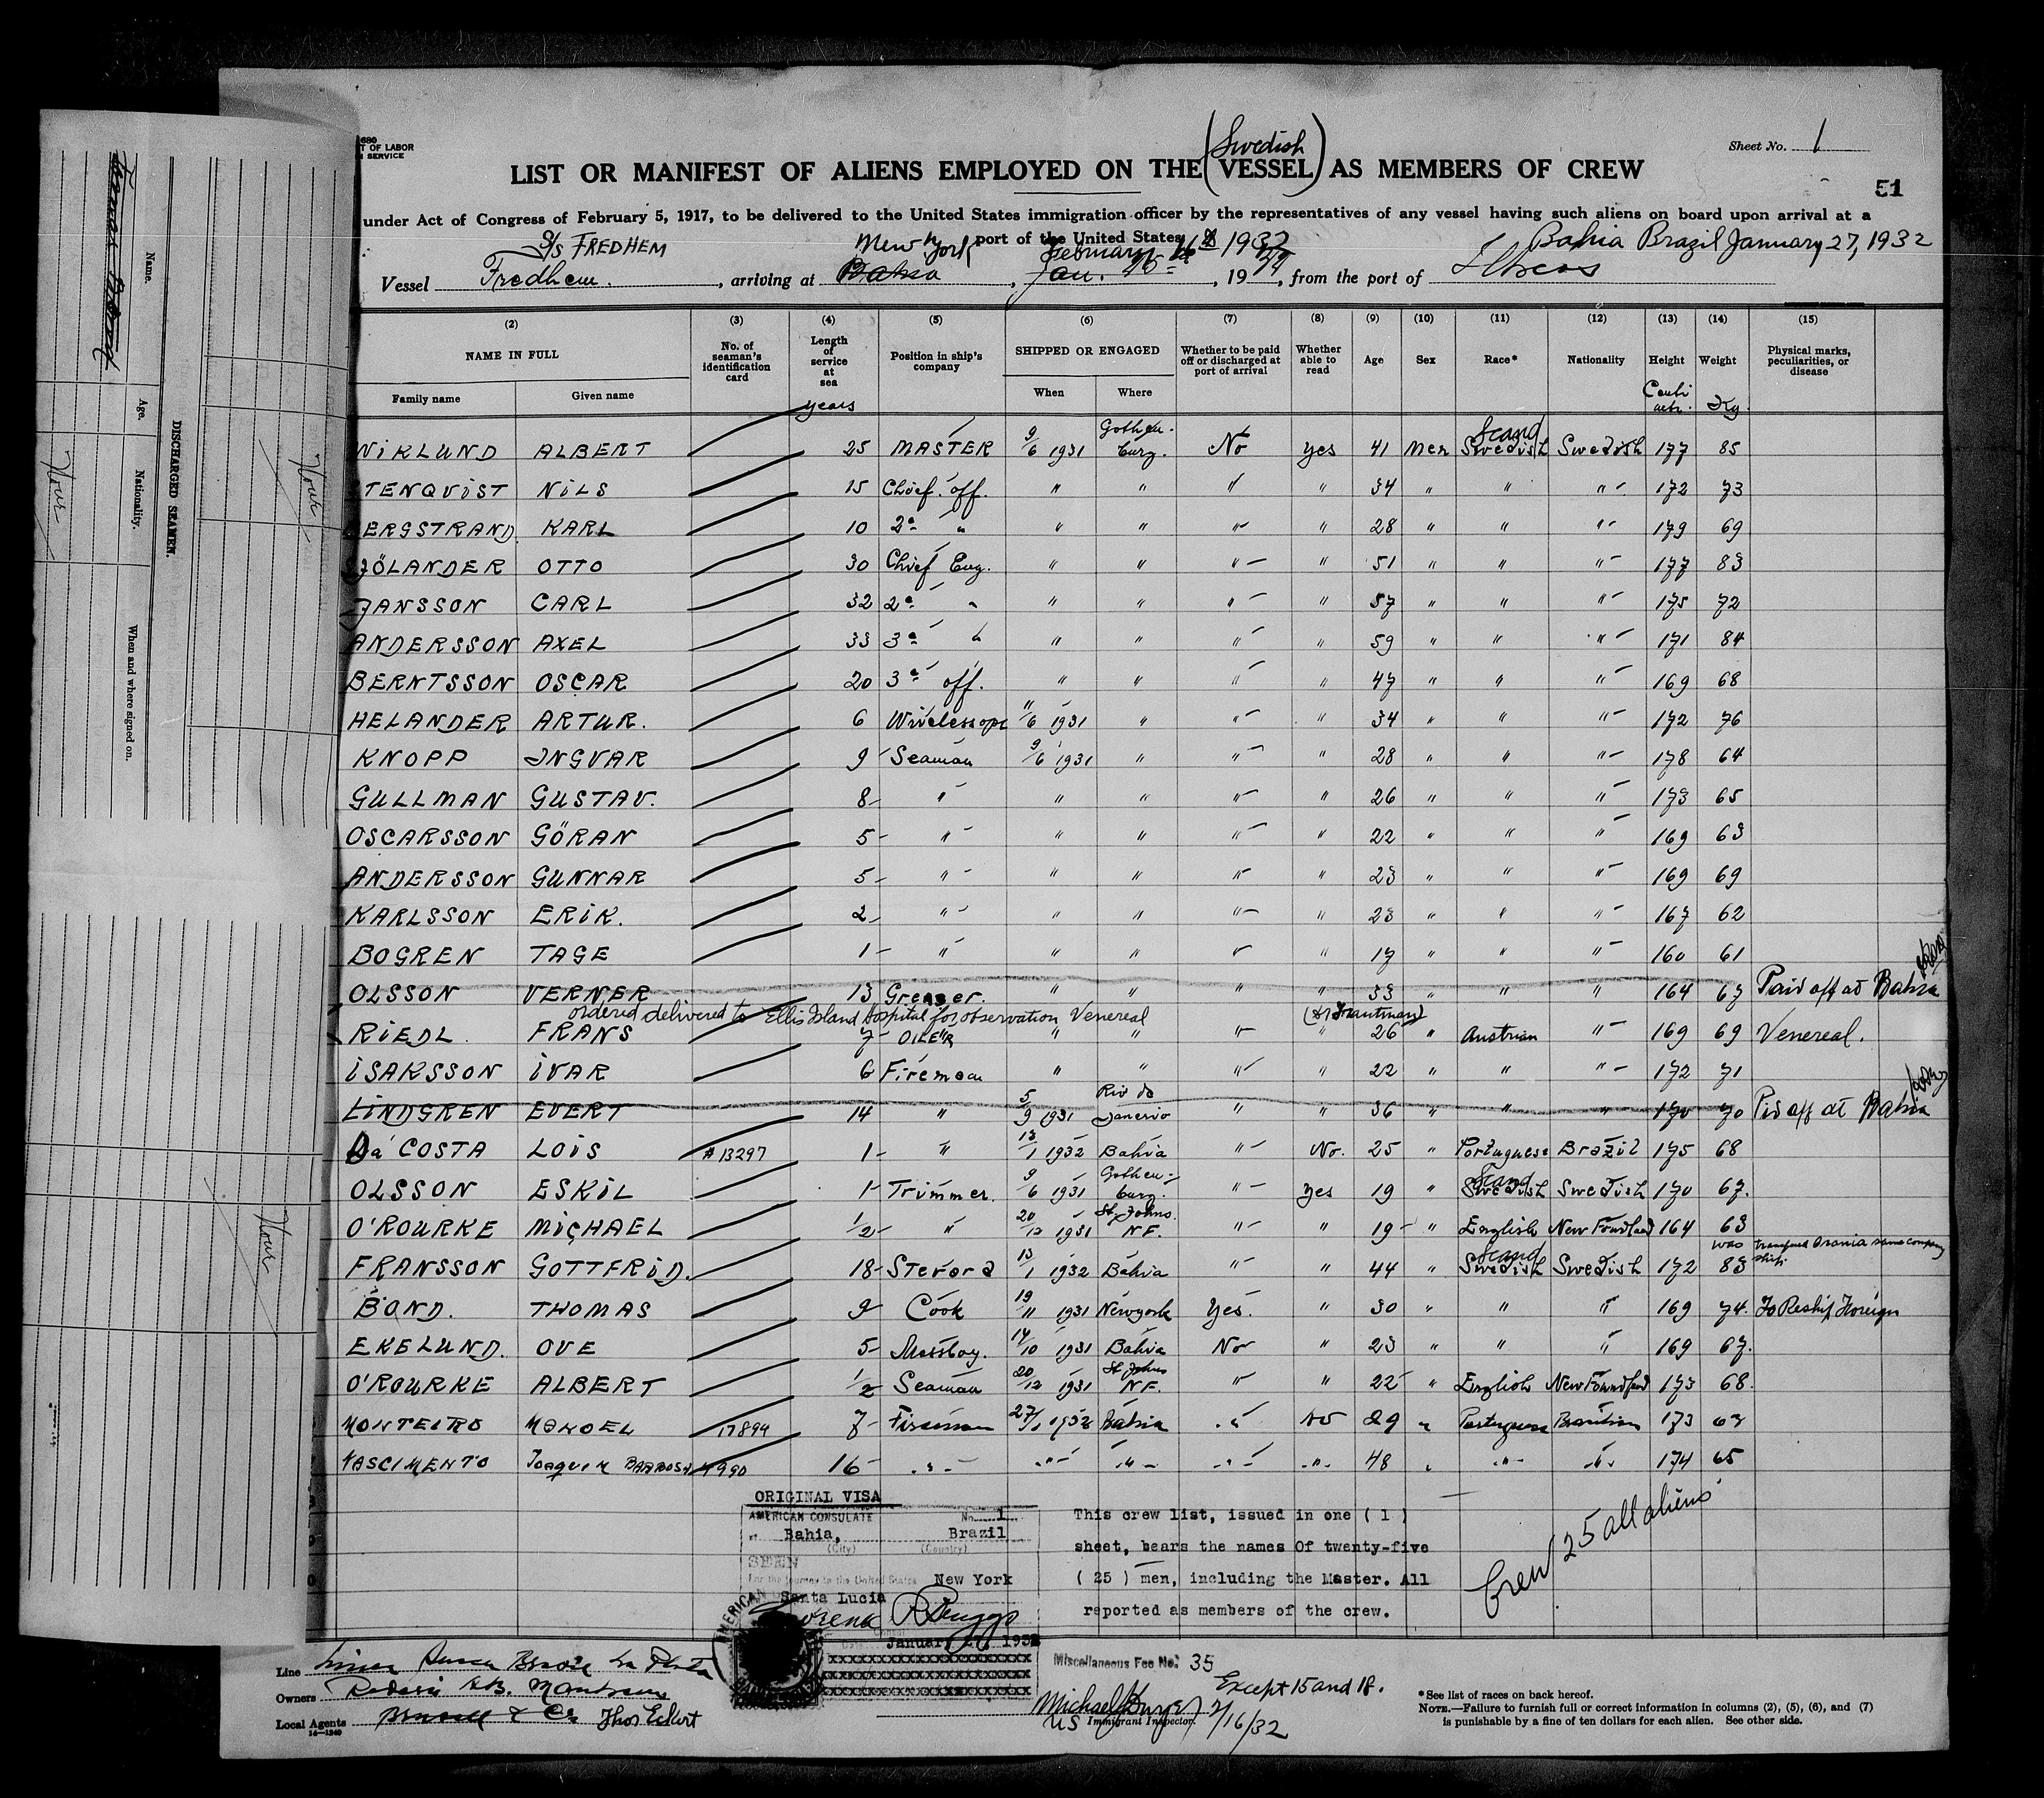 680
T OF LABOR
N SERVICE
Sheet No. 1
(Swedish)
LIST OR MANIFEST OF ALIENS EMPLOYED ON THE VESSEL AS MEMBERS OF CREW
51
under Act of Congress of February 5, 1917, to be delivered to the United States immigration officer by the representatives of any vessel having such aliens on board upon arrival at a
port of the United States
S/S FREDHEM New York February 16 1932 Bahia Brazil January 27, 1932
Vessel Fredhem. , arriving at Bahia , Jan. , 19 , from the port of
(2) (3) (4) (5) (6) (7) (8) (9) (10) (11) (12) (13) (14) (15)
NAME IN FULL No. of seaman's identification card Length of service at sea Position in ship's company SHIPPED OR ENGAGED Whether to be paid off or discharged at port of arrival Whether able to read Age Sex Race* Nationality Height Weight Physical marks, peculiarities, or disease
Family name Given name years When Where Kg.
NIKLUND ALBERT 25 MASTER 9/6 1931 Gothenburg. No yes 41 Men Scand Swedish Swedish 177 85
TENQVIST NILS 15 Chief. off. " " " " 34 " " " 172 73
BERGSTRAND. KARL 10 2a " " " " " 28 " " " 179 69
JÖLANDER OTTO 30 Chief Eng. " " " " 51 " " " 177 83
JANSSON CARL 32 2a " " " " " 57 " " " 175 72
ANDERSSON AXEL 33 3a " " " " " 59 " " " 171 84
BERNTSSON OSCAR 20 3a off. " " " " 47 " " " 169 68
HELANDER ARTUR. 6 Wirelessope 11/6 1931 " " " 34 " " " 172 76
KNOPP INGVAR 9 Seaman 9/6 1931 " " " 28 " " " 178 64
GULLMAN GUSTAV. 8 " " " " " 26 " " " 173 65
OSCARSSON GÖRAN 5 " " " " " 22 " " " 169 63
ANDERSSON GUNNAR 5 " " " " " 23 " " " 169 69
KARLSSON ERIK. 2 " " " " " 23 " " " 167 62
BOGREN TAGE 1 " " " " " 17 " " " 160 61
OLSSON VERNER 13 Greaser. " " " " 33 " " " 164 67 Paid off at Bahia
ordered delivered to Ellis Island Hospital for observation Venereal
RIEDL. FRANS 7 OILER " " " " 26 " Austrian " 169 69 Venereal.
ISAKSSON IVAR 6 Fireman " " " " 22 " " " 172 71
LINDGREN EVERT 14 " 5/9 1931 Rio do Janerio " " 36 " " " 170 70 Pid off at Bahia
Da COSTA LOIS #13297 1 " 13/1 1932 Bahia " No. 25 " Portuguese Brazil 175 68
OLSSON ESKIL 1 Trimmer. 9/6 1931 Gothenburg. " yes 19 " Scand Swedish Swedish 170 67.
O'ROURKE MICHAEL 1/2 " 20/12 1931 St. Johns. N.F. " " 19 " English New Foundland 164 63
FRANSSON GOTTFRID. 18 Steward 13/1 1932 Bahia " " 44 " Scand Swedish Swedish 172 83 was transfered Orania same company ship.
BOND. THOMAS 9 Cook 19/11 1931 Newyork Yes. " 30 " " " 169 74. To Reship Foreign
EKELUND. OVE 5 Messboy. 14/10 1931 Bahia No " 23 " " " 169 67.
O'ROURKE ALBERT 1/2 Seaman 20/12 1931 St Johns N.F. " " 22 " English New Foundland 173 68.
MONTEIRO MANOEL 17894 7 Fireman 27/1 1932 Bahia " No 29 " Portuguese Brasilian 173 67
NASCIMENTO Joaquim BARBOSA 4990 16 " " " " " 48 " " " 174 65
ORIGINAL VISA
AMERICAN CONSULATE No. 1
at Bahia, Brazil
(City) (Country)
SEEN
For the journey to the United States New York
Santa Lucia
January 27, 1932
This crew list, issued in one ( 1 )
sheet, bears the names Of twenty-five
( 25 ) men, including the Master. All
reported as members of the crew.
Crew 25 all aliens
Miscellaneous Fee No. 35
Except 15 and 18.
Line
Owners
Local Agents Thor Eckert
14—1240
US Immigrant Inspector. 2/16/32
*See list of races on back hereof.
NOTE.—Failure to furnish full or correct information in columns (2), (5), (6), and (7)
is punishable by a fine of ten dollars for each alien. See other side.
DISCHARGED SEAMEN.
Name. Age. Nationality. When and where signed on.